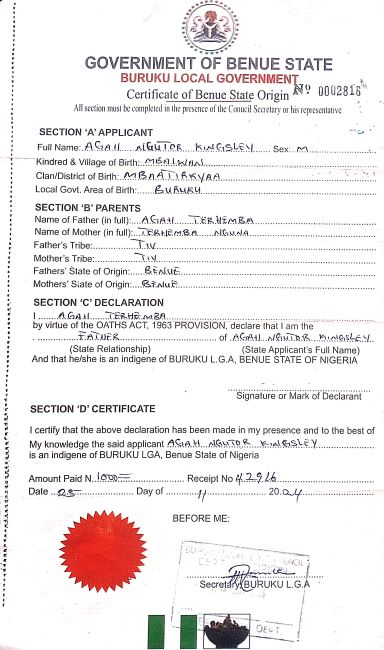 GOVERNMENT OF BENUE STATE
BURUKU LOCAL GOVERNMENT
Certificate of Benue State Origin No 0002816
All section must be completed in the presence of the Council Secretary or his representative
SECTION 'A' APPLICANT
Full Name: AGAH NGUTOR KINGSLEY Sex: M
Kindred & Village of Birth: MBAIWAN
Clan/District of Birth: MBAATIRKYAA
Local Govt. Area of Birth: BURUKU
SECTION 'B' PARENTS
Name of Father (in full): AGAH TERHEMBA
Name of Mother (in full): TERHEMBA NGUNA
Father's Tribe: TIV
Mother's Tribe: TIV
Fathers' State of Origin: BENUE
Mothers' State of Origin: BENUE
SECTION 'C' DECLARATION
I AGAH TERHEMBA
by virtue of the OATHS ACT, 1963 PROVISION, declare that I am the
FATHER of AGAH NGUTOR KINGSLEY
(State Relationship) (State Applicant's Full Name)
And that he/she is an indigene of BURUKU L.G.A, BENUE STATE OF NIGERIA
Signature or Mark of Declarant
SECTION 'D' CERTIFICATE
I certify that the above declaration has been made in my presence and to the best of
My knowledge the said applicant AGAH NGUTOR KINGSLEY
is an indigene of BURUKU LGA, Benue State of Nigeria
Amount Paid N 1000= Receipt No 42916
Date 25 Day of 11 2024
BEFORE ME:
Secretary BURUKU L.G.A
DEPT.